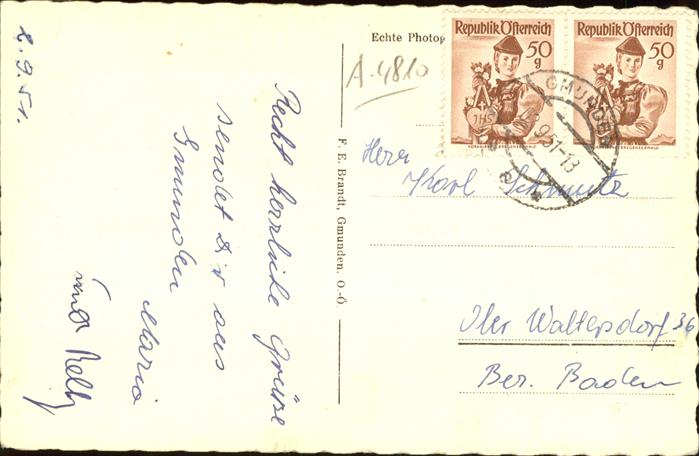 2.9.51.
Recht herzliche Grüsse
sendet Dir aus
Gmunden
Maria
und
F. E. Brandt, Gmunden, O.-Ö.
Echte Photog
A-4810
Republik Österreich
50
g
JHS
Republik Österreich
50
g
GMUNDEN
9 51-13
Herr
Karl Schmutz
Ober Waltersdorf 36
Bez. Baden